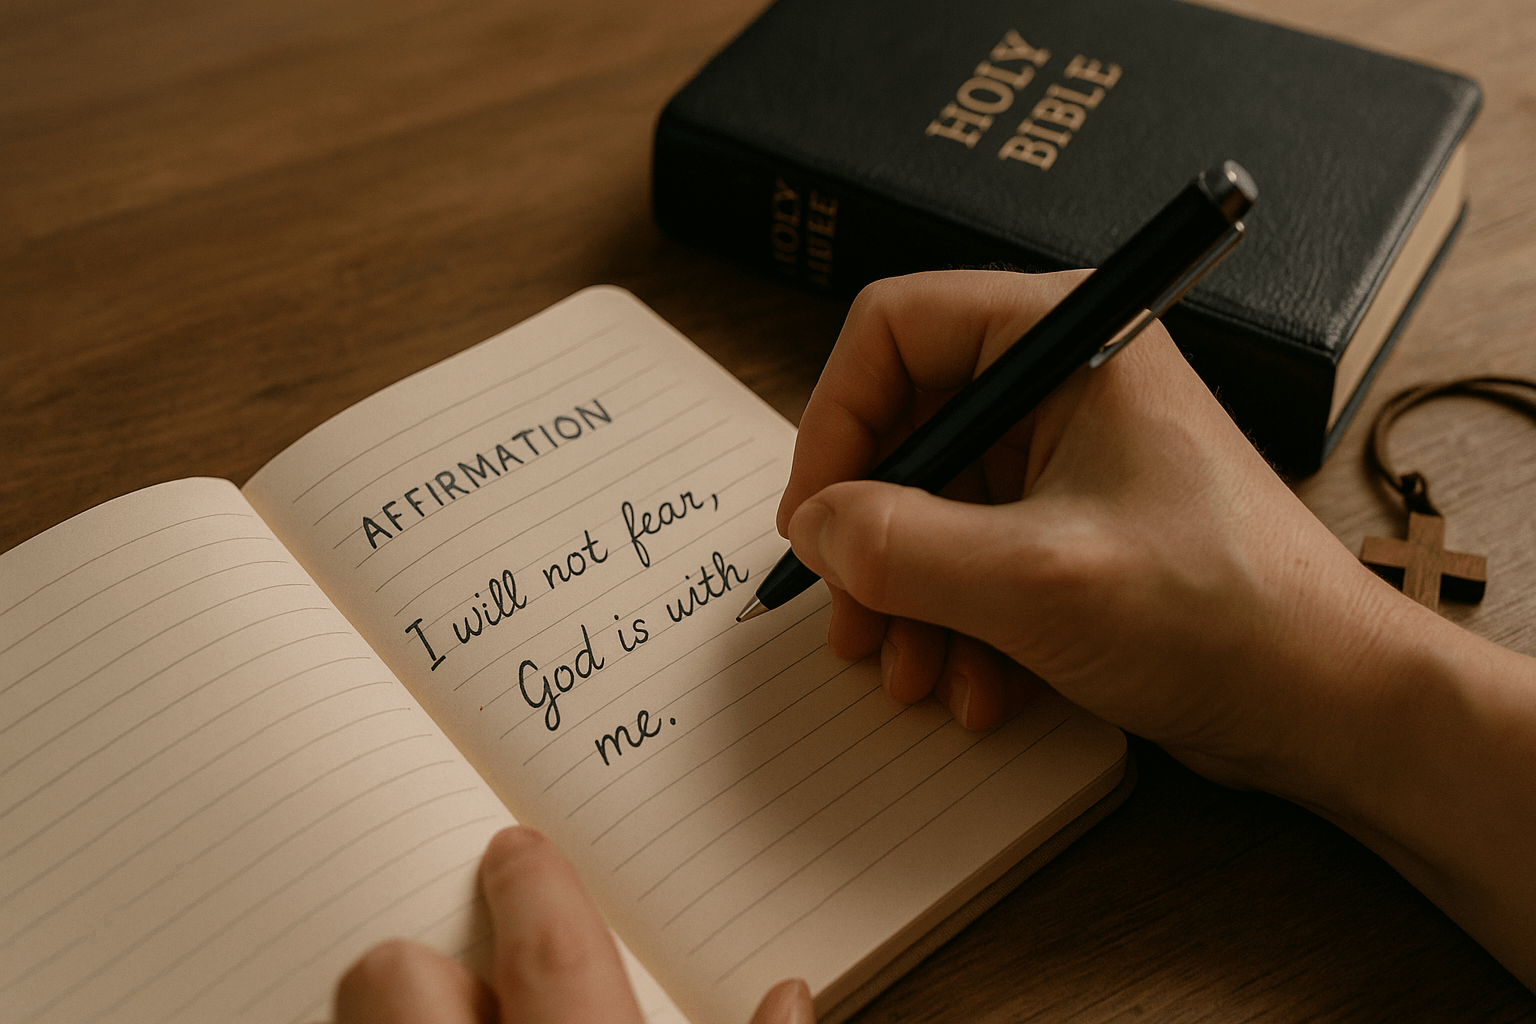 HOLY
BIBLE
HOLY
AFFIRMATION
I will not fear,
God is with
me.